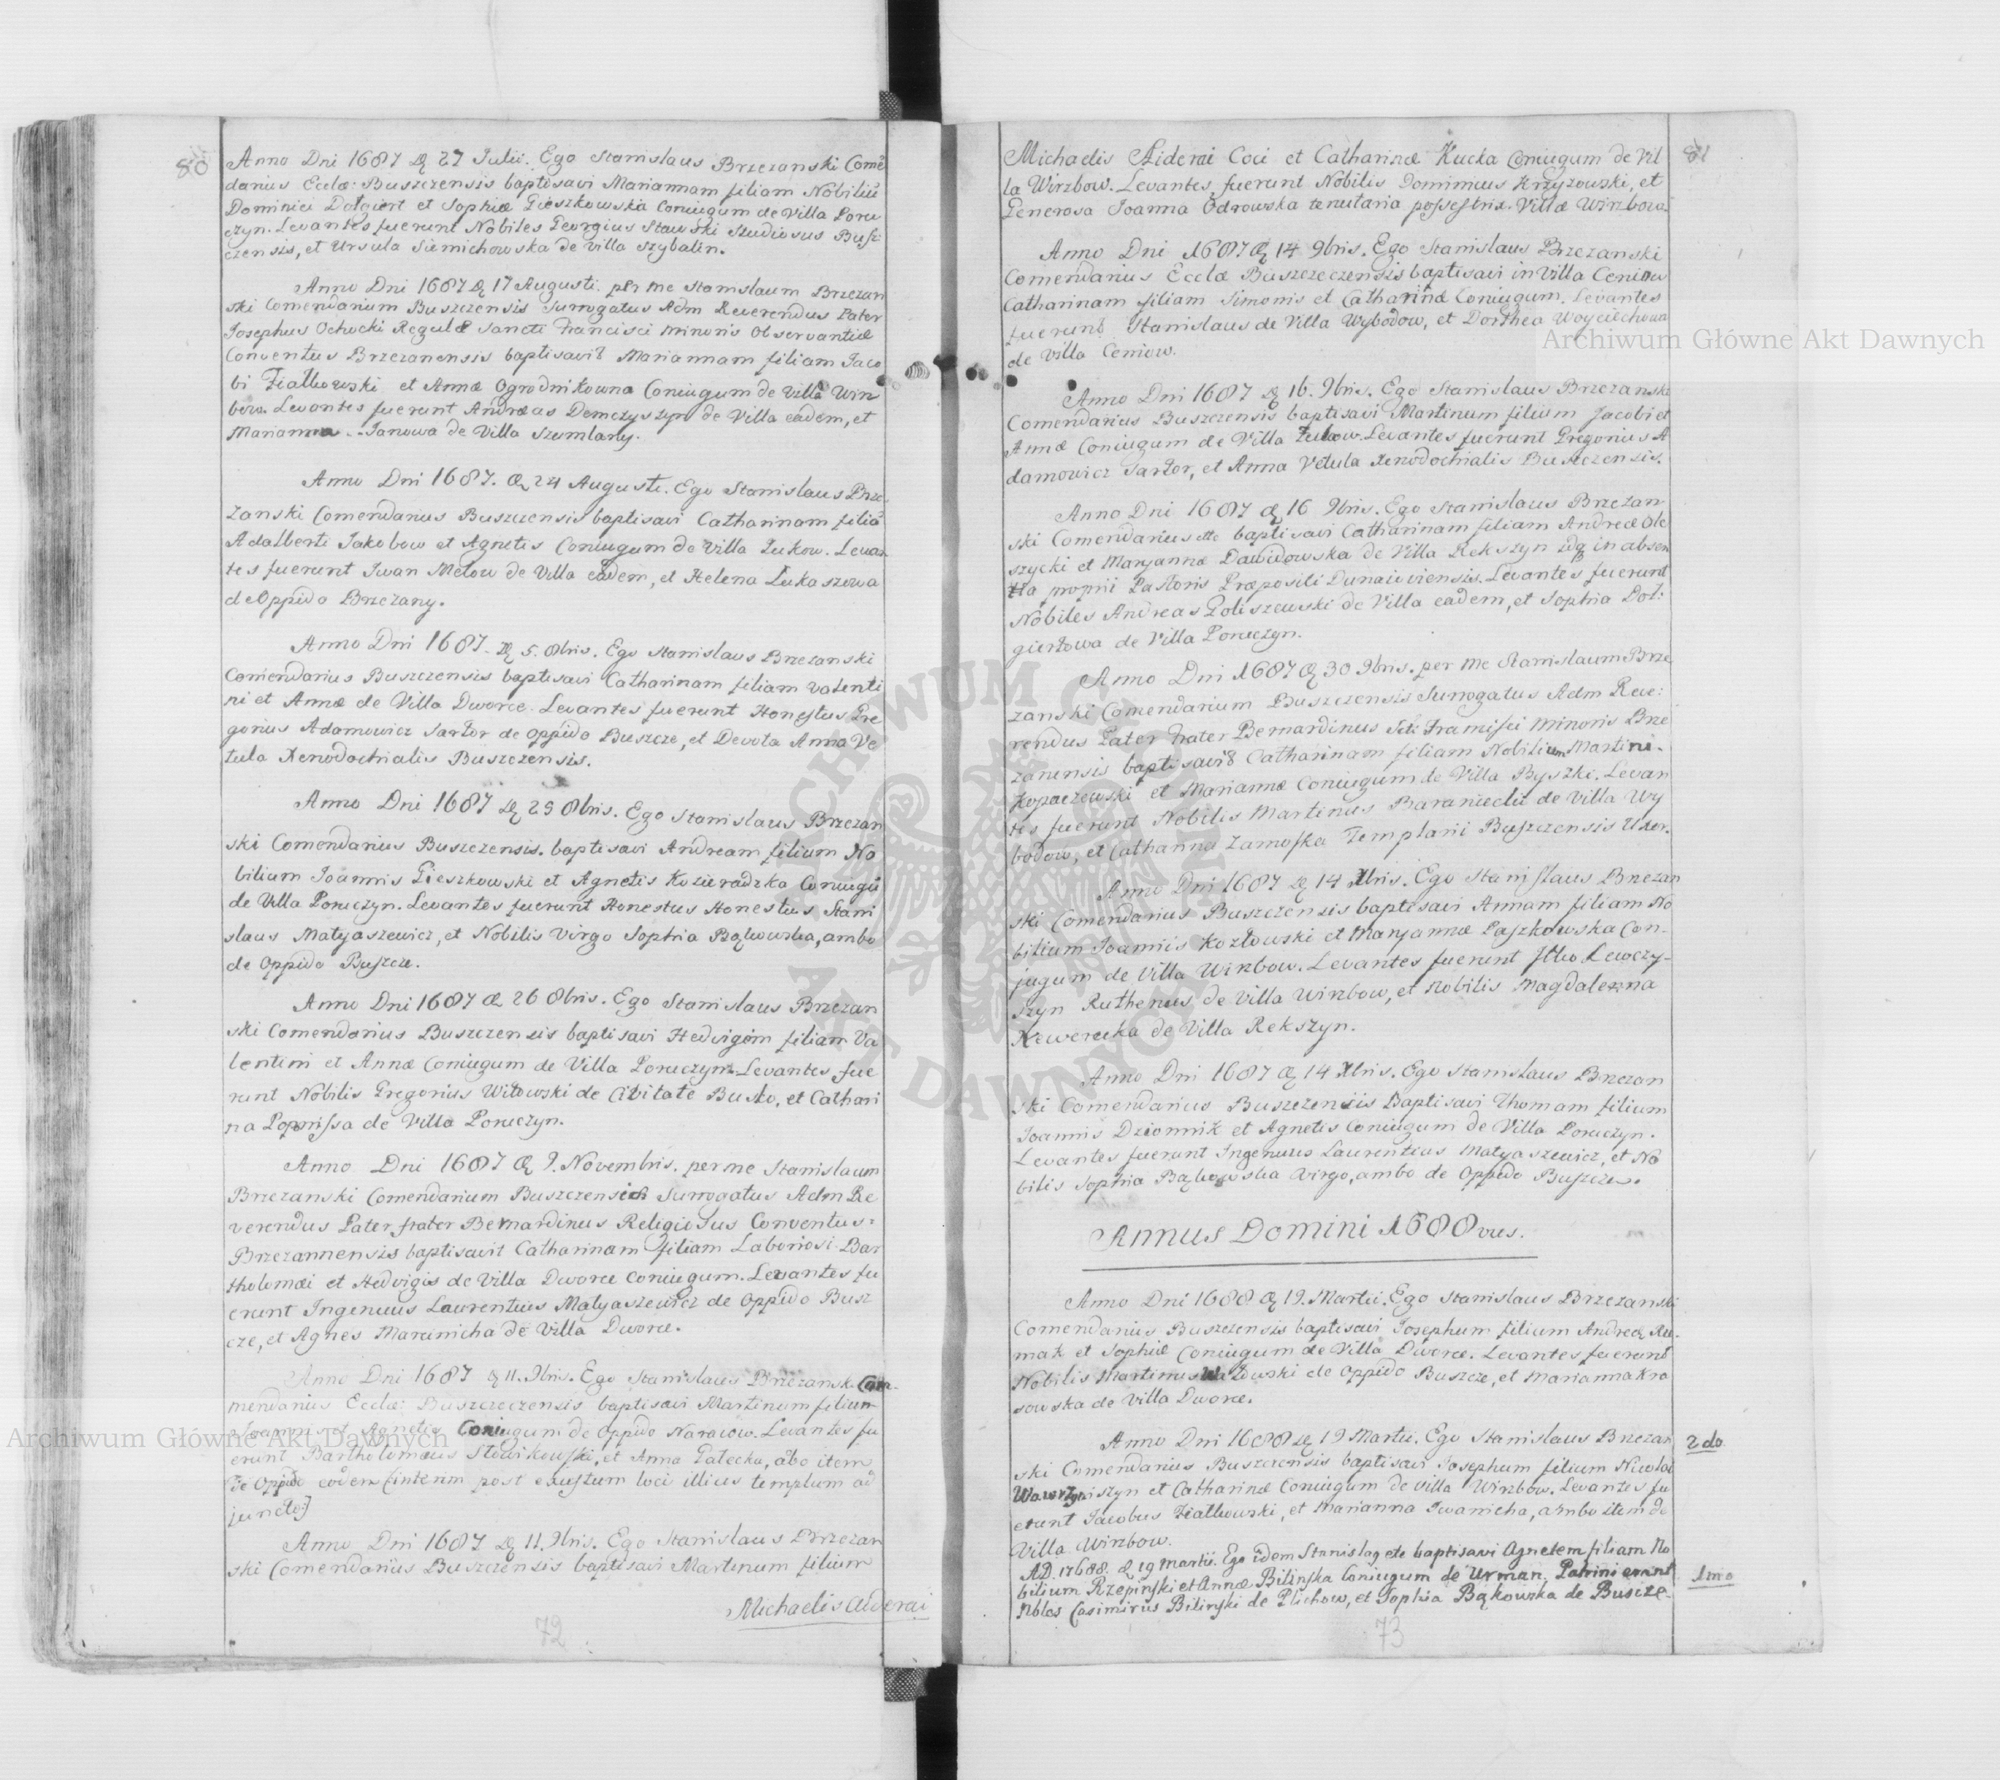 80
Anno Dni 1687 D 27 Julii. Ego Stanislaus Brzezanski Come
danius Eccle: Buszczensis baptisavi Mariannam filiam Nobiliũ
Dominici Dołgiert et Sophiæ Gieszkowskia Coniugum de Villa Poru
czyn. Levantes fuerunt Nobiles Georgius Stawski Studiosus Busz
czensis, et Ursula Siemichowska de Villa Szybalin.
Anno Dni 1687 D 17 Augusti. per me Stanislaum Brzezan
ski Comendarium Buszczensis Surrogatus Adm Reverendus Pater
Josephus Ochocki Regulæ Sancti Francisci Minoris Observantiæ
Conventus Brzezanensis baptisavit Mariannam filiam Jaco
bi Fiałkowski et Annæ Ogrodnikowna Coniugum de Villa Wirz
bow. Levantes fuerunt Andreas Demczyszyn de Villa eadem, et
Marianna Janowa de Villa Szumlany.
Anno Dni 1687. D 24 Augusti. Ego Stanislaus Brze
zanski Comendarius Buszczensis baptisavi Catharinam filiã
Adalberti Jakobow et Agnetis Coniugum de Villa Żukow. Levan
tes fuerunt Iwan Melow de Villa eadem, et Helena Łukaszowa
de Oppido Brzezany.
Anno Dni 1687. D 5. 8bris. Ego Stanislaus Brzezanski
Comendarius Buszczensis baptisavi Catharinam filiam Valenti
ni et Annæ de Villa Dworce. Levantes fuerunt Honestus Gre
gorius Adamowicz Sartor de Oppido Buszcze, et Devota Anna Ve
tula Xenodochialis Buszczensis.
Anno Dni 1687 D 23 8bris. Ego Stanislaus Brzezan
ski Comendarius Buszczensis. baptisavi Andream filium No
bilium Joannis Gieszkowski et Agnetis Kozieradzka Coniugũ
de Villa Poruczyn. Levantes fuerunt Honestus Honestus Stani
slaus Matyaszewicz, et Nobilis Virgo Sophia Bąkowska, ambo
de Oppido Buszcze.
Anno Dni 1687 D 26 8bris. Ego Stanislaus Brzezan
ski Comendarius Buszczensis baptisavi Hedvigim filiam Va
lentini et Annæ Coniugum de Villa Poruczyn. Levantes fue
runt Nobilis Gregorius Witowski de Civitate Busko, et Cathari
na Popnissa de Villa Poruczyn.
Anno Dni 1687 D 9. Novembris. per me Stanislaum
Brzezanski Comendarium Buszczensem Surrogatus Adm Re
verendus Pater, frater Bernardinus Religiosus Conventus
Brzezannensis baptisavit Catharinam filiam Laboriosi Bar
tholomæi et Hedvigis de Villa Dworce Coniugum. Levantes fu
erunt Ingenuus Laurentius Matyaszewicz de Oppido Busz
cze, et Agnes Marcinicha de Villa Dworce.
Anno Dni 1687 D 11. 9bris. Ego Stanislaus Brzezanski Com
mendarius Eccle: Buszczeczensis baptisavi Martinum filium
Joannis et Agnetis Coniugum de Oppido Naraiow. Levantes fu
erunt Bartholomæus Słowikowski, et Anna Gałecka, ãbo item
de Oppido eodem [interim post exustum loci illius templum ad
juncto]
Anno Dni 1687 D 11. 9bris. Ego Stanislaus Brzezan
ski Comendarius Buszczensis baptisavi Martinum filium
Michaelis Alderai
72
81
Michaelis Aiderai Coci et Catharinæ Kucka Coniugum de Vil
la Wirzbow. Levantes fuerunt Nobilis Dominicus Krzyzowski, et
Generosa Joanna Odrowska tenutaria possestrix Villæ Wirzbow.
Anno Dni 1687 D 14 9bris. Ego Stanislaus Brzezanski
Comendarius Ecclæ Buszczeczensis baptisavi in Villa Ceniow
Catharinam filiam Simonis et Catharinæ Coniugum. Levantes
fuerunt Stanislaus de Villa Wybodow, et Dorthea Woyciechowa
de Villa Ceniow.
Anno Dni 1687 D 16. 9bris. Ego Stanislaus Brzezanski
Comendarius Buszczensis baptisavi Martinum filium Jacobi et
Annæ Coniugum de Villa Żukow. Levantes fuerunt Gregorius A
damowicz Sartor, et Anna Vetula Xenodochialis Buszczensis.
Anno Dni 1687 D 16 9bris. Ego Stanislaus Brzezan
ski Comendarius etc baptisavi Catharinam filiam Andreæ Ole
szycki et Maryannæ Dawidowska de Villa Rekszyn idq in absen
tia proprii Pastoris Præpositi Dunaioviensis. Levantes fuerunt
Nobiles Andreas Goliszewski de Villa eadem, et Sophia Doł
giertowa de Villa Poruczyn.
Anno Dni 1687 D 30 9bris. per me Stanislaum Brze
zanski Comendarium Buszczensis Surrogatus Adm Reve:
rendus Pater frater Bernardinus Scti Francisci Minoris Brze
zanensis baptisavit Catharinam filiam Nobilium Martini
Kopaczewski et Mariannæ Coniugum de Villa Byszki. Levan
tes fuerunt Nobilis Martinus Baraniecki de Villa Wy
bodow, et Catharina Zamoska Templarii Buszczensis Uxor.
Anno Dni 1687 D 14 Xbris. Ego Stanislaus Brzezan
ski Comendarius Buszczensis baptisavi Annam filiam No
bilium Joannis Kozłowski et Maryannæ Paszkowska Con-
jugum de Villa Wirzbow. Levantes fuerunt Ilko Lewczy-
szyn Ruthenus, de Villa Wirzbow, et Nobilis Magdalenna
Kewerecka de Villa Rekszyn.
Anno Dni 1687 D 14 Xbris. Ego Stanislaus Brzezan
ski Comendarius Buszczensis Baptisavi Thomam filium
Joannis Dziomnik et Agnetis Coniugum de Villa Poruczyn.
Levantes fuerunt Ingenuus Laurentius Matyaszewicz, et No
bilis Sophia Bąkowska Virgo, ambo de Oppido Buszcze.
Annus Domini 1688vus.
Anno Dni 1688 D 19. Martii. Ego Stanislaus Brzezanski
Comendarius Buszczensis baptisavi Josephum filium Andreæ Ru-
mak et Sophiæ Coniugum de Villa Dworce. Levantes fuerunt
Nobilis Martinus de Oppido Buszcze, et Marianna Kra
sowska de Villa Dworce.
Anno Dni 1688 D 19 Martii. Ego Stanislaus Brzezan
2do
ski Comendarius Buszczensis baptisavi Josephum filium Nicolai
Wawrzyniszyn et Catharinæ Coniugum de Villa Wirzbow. Levantes fu
erunt Jacobus Fiałkowski, et Marianna Iwanicha, ambo item de
Villa Wirzbow.
AD. 1688. D 19 Martii. Ego idem Stanislaq etc baptisavi Agnetem filiam No
bilium Rzepinski et Annæ Bilinska Coniugum de Urman. Patrini erant
1mo
Nbles Casimirus Bilinski de Plichow, et Sophia Bąkowska de Buszcze.
73
Archiwum Główne Akt Dawnych
Archiwum Główne Akt Dawnych
ARCHIWUM GŁÓWNE AKT DAWNYCH